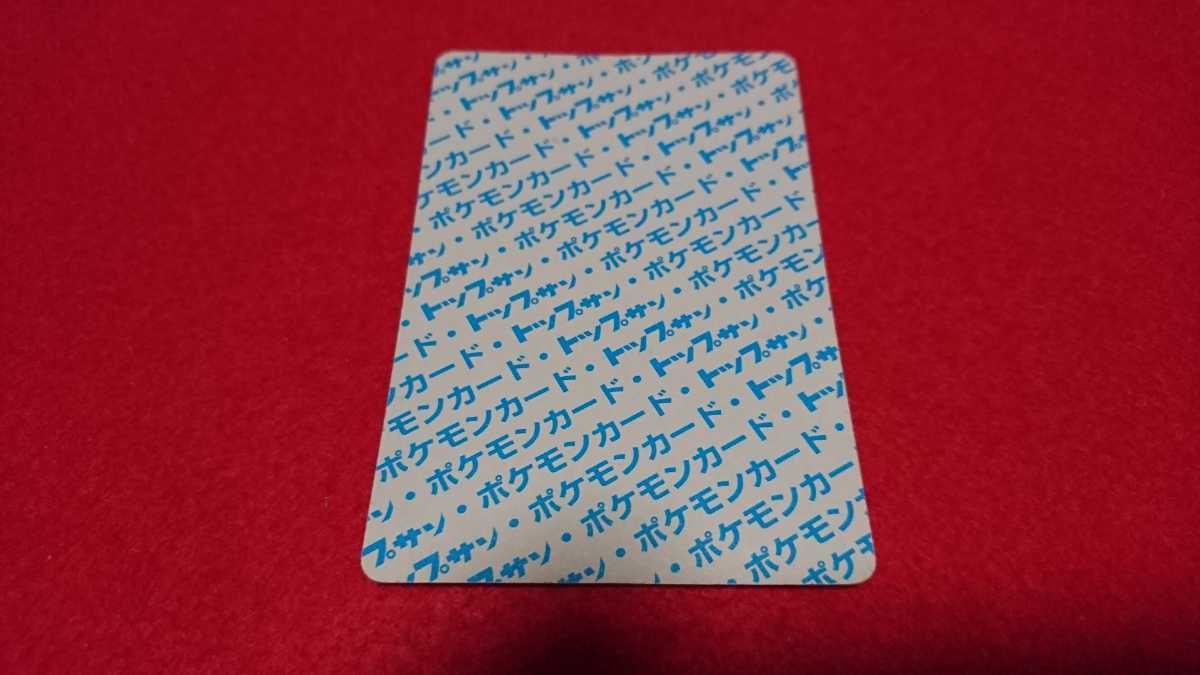 サン・
ップサン・ポ
・トップサン・ポケ
ード・トップサン・ポケモ
ンカード・トップサン・ポケ
ケモンカード・トップサン・ポ
・ポケモンカード・トップサン
サン・ポケモンカード・トップ
ップサン・ポケモンカード・ト
・トップサン・ポケモンカード
ード・トップサン・ポケモンカー
ンカード・トップサン・ポケモン
モンカード・トップサン・ポケ
ポケモンカード・トップサン・
ン・ポケモンカード・トップサ
プサン・ポケモンカード・トッ
ップサン・ポケモンカード・
サン・ポケモンカー
サン・ポケモン
ポケ